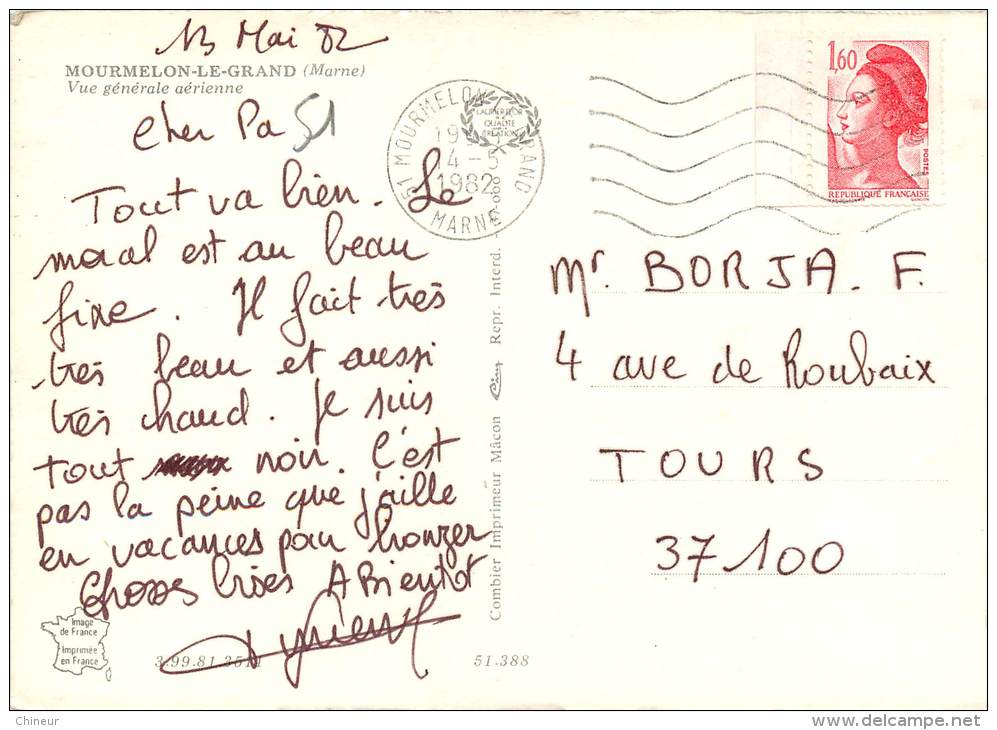 13 Mai 82
MOURMELON-LE-GRAND (Marne)
Vue générale aérienne
Cher Pa
51
Tout va bien. Le
moral est au beau
fixe. Il fait très
très beau et aussi
très chaud. Je suis
tout noir. C'est
pas la peine que j'aille
en vacances pour bronzer
Grosses bises A Bientot
Image
de France
Imprimée
en France
3.99.81.3511
51.388
Combier Imprimeur Mâcon
Repr. Interd.
51 MOURMELON GRAND
14-5
1982
MARNE
LAURIER D'OR
QUALITÉ
CRÉATION
1,60
POSTES
REPUBLIQUE FRANÇAISE
GANDON
Mr BORJA. F.
4 ave de Roubaix
TOURS
37100
Chineur
delcampe.net